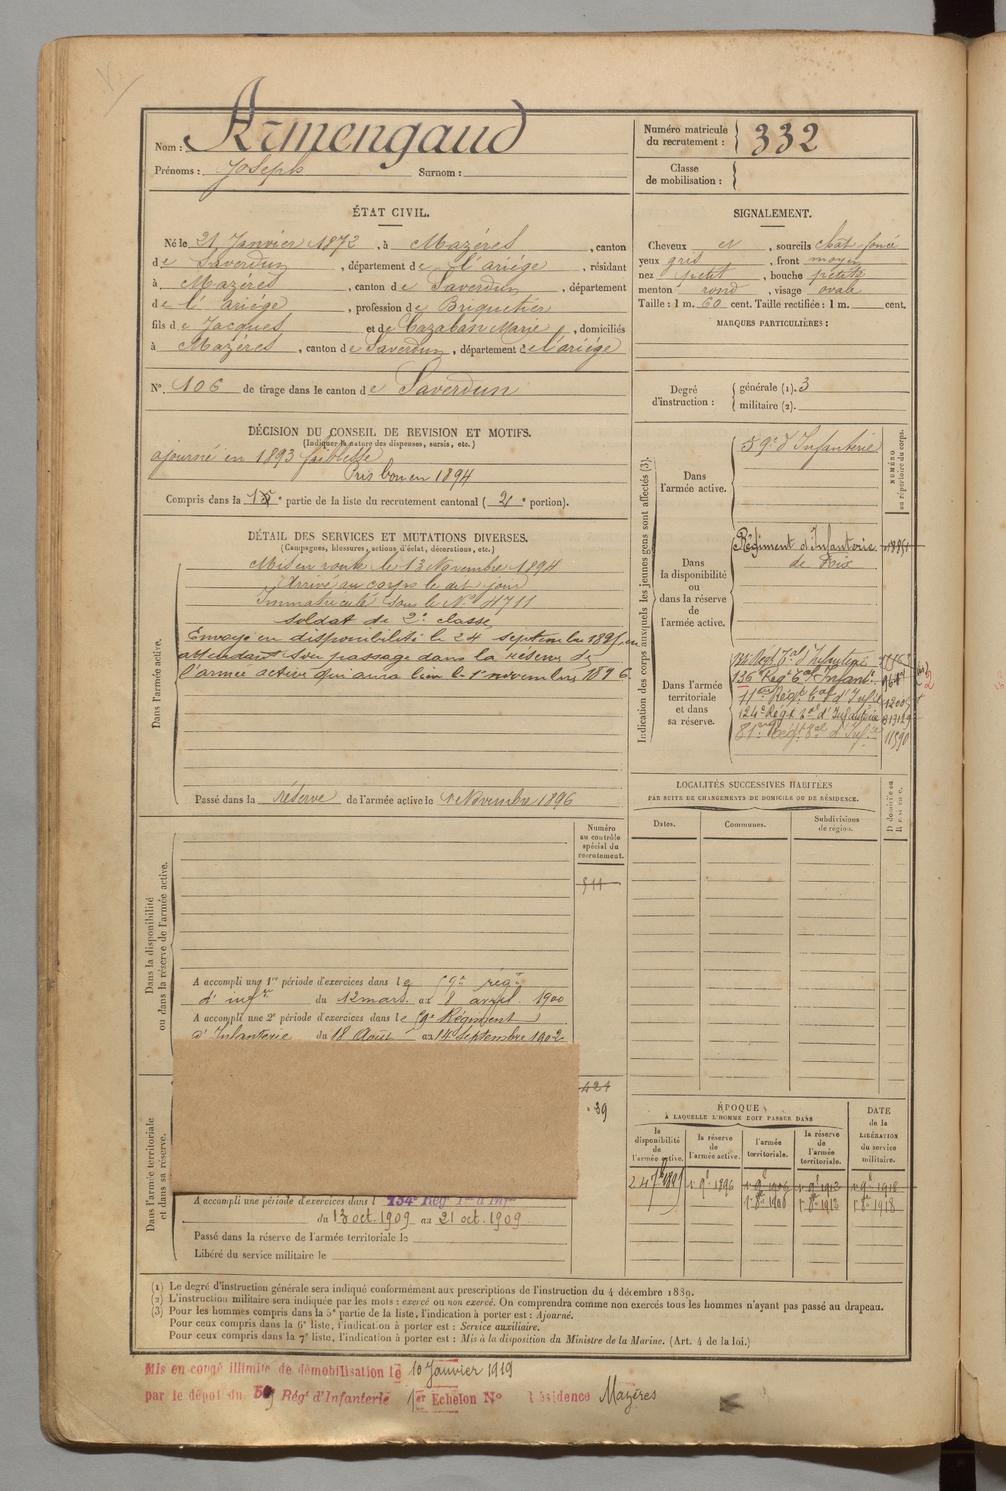 Nom : Armengaud
Prénoms : Joseph Surnom :
Numéro matricule du recrutement : 332
Classe de mobilisation :
ÉTAT CIVIL.
Né le 21 Janvier 1872, à Mazéres, canton
de Saverdun, département de l'ariége, résidant
à Mazéres, canton de Saverdun, département
de l'ariége, profession de Briquetier
fils de Jacques et de Cazaban Marie, domiciliés
à Mazéres, canton de Saverdun, département de l'ariége
N° 106 de tirage dans le canton de Saverdun
SIGNALEMENT.
Cheveux , sourcils chat-foncé
yeux gris, front moyen
nez petit, bouche petite
menton rond, visage ovale
Taille : 1 m. 60 cent. Taille rectifiée : 1 m. cent.
MARQUES PARTICULIÈRES :
Degré d'instruction : générale (1). 3
militaire (2).
DÉCISION DU CONSEIL DE REVISION ET MOTIFS.
(Indiquer la nature des dispenses, sursis, etc.)
ajourné en 1893 faiblesse
Pris bon en 1894
Compris dans la 1e partie de la liste du recrutement cantonal ( 2e portion).
DÉTAIL DES SERVICES ET MUTATIONS DIVERSES.
(Campagnes, blessures, actions d'éclat, décorations, etc.)
Dans l'armée active.
Mis en route le 13 Novembre 1894
Arrivé au corps le dit jour
Immatriculé sous le N° 4711
soldat de 2e classe
Envoyé en disponibilité le 24 septembre 1895, en
attendant son passage dans la réserve de
l'armée active qui aura lieu le 1er novembre 1896
Passé dans la réserve de l'armée active le 1er Novembre 1896
Indication des corps auxquels les jeunes gens sont affectés (3).
NUMÉRO au répertoire du corps.
Dans l'armée active.
59e d'Infanterie
Dans la disponibilité ou dans la réserve de l'armée active.
Régiment d'Infanterie
de Foix
Dans l'armée territoriale et dans sa réserve.
136e Régt Tal d'Infant.
124e Régt Tal d'Infanterie
81e Régt Tal d'Infie
LOCALITÉS SUCCESSIVES HABITÉES
PAR SUITE DE CHANGEMENTS DE DOMICILE OU DE RÉSIDENCE.
Dates. Communes. Subdivisions de région.
Dans la disponibilité ou dans la réserve de l'armée active.
Numéro au contrôle spécial du recrutement.
A accompli une 1re période d'exercices dans le 59e régt
d'infrie du 12 mars au 8 avril 1900
A accompli une 2e période d'exercices dans le 59e Régiment
d'Infanterie du 18 Août au 14 Septembre 1902
Dans l'armée territoriale et dans sa réserve.
421
39
A accompli une période d'exercices dans l 134e Régt
du 13 oct. 1909 au 21 oct. 1909
Passé dans la réserve de l'armée territoriale le
Libéré du service militaire le
ÉPOQUE
À LAQUELLE L'HOMME DOIT PASSER DANS
la disponibilité de l'armée active.
la réserve de l'armée active.
l'armée territoriale.
la réserve de l'armée territoriale.
DATE de la LIBÉRATION du service militaire.
24 7bre 1895 1r 9bre 1896 1r 9bre 1906 1r 9bre 1912 1r 9bre 1918
1r 8bre 1908 1r 8bre 1912 1r 8bre 1918
(1) Le degré d'instruction générale sera indiqué conformément aux prescriptions de l'instruction du 4 décembre 1889.
(2) L'instruction militaire sera indiquée par les mots : exercé ou non exercé. On comprendra comme non exercés tous les hommes n'ayant pas passé au drapeau.
(3) Pour les hommes compris dans la 5e partie de la liste, l'indication à porter est : Ajourné.
Pour ceux compris dans la 6e liste, l'indication à porter est : Service auxiliaire.
Pour ceux compris dans la 7e liste, l'indication à porter est : Mis à la disposition du Ministre de la Marine. (Art. 4 de la loi.)
Mis en congé illimité de démobilisation le 10 Janvier 1919
par le dépot du 59 Régt d'Infanterie 1er Echelon N° Résidence Mazères